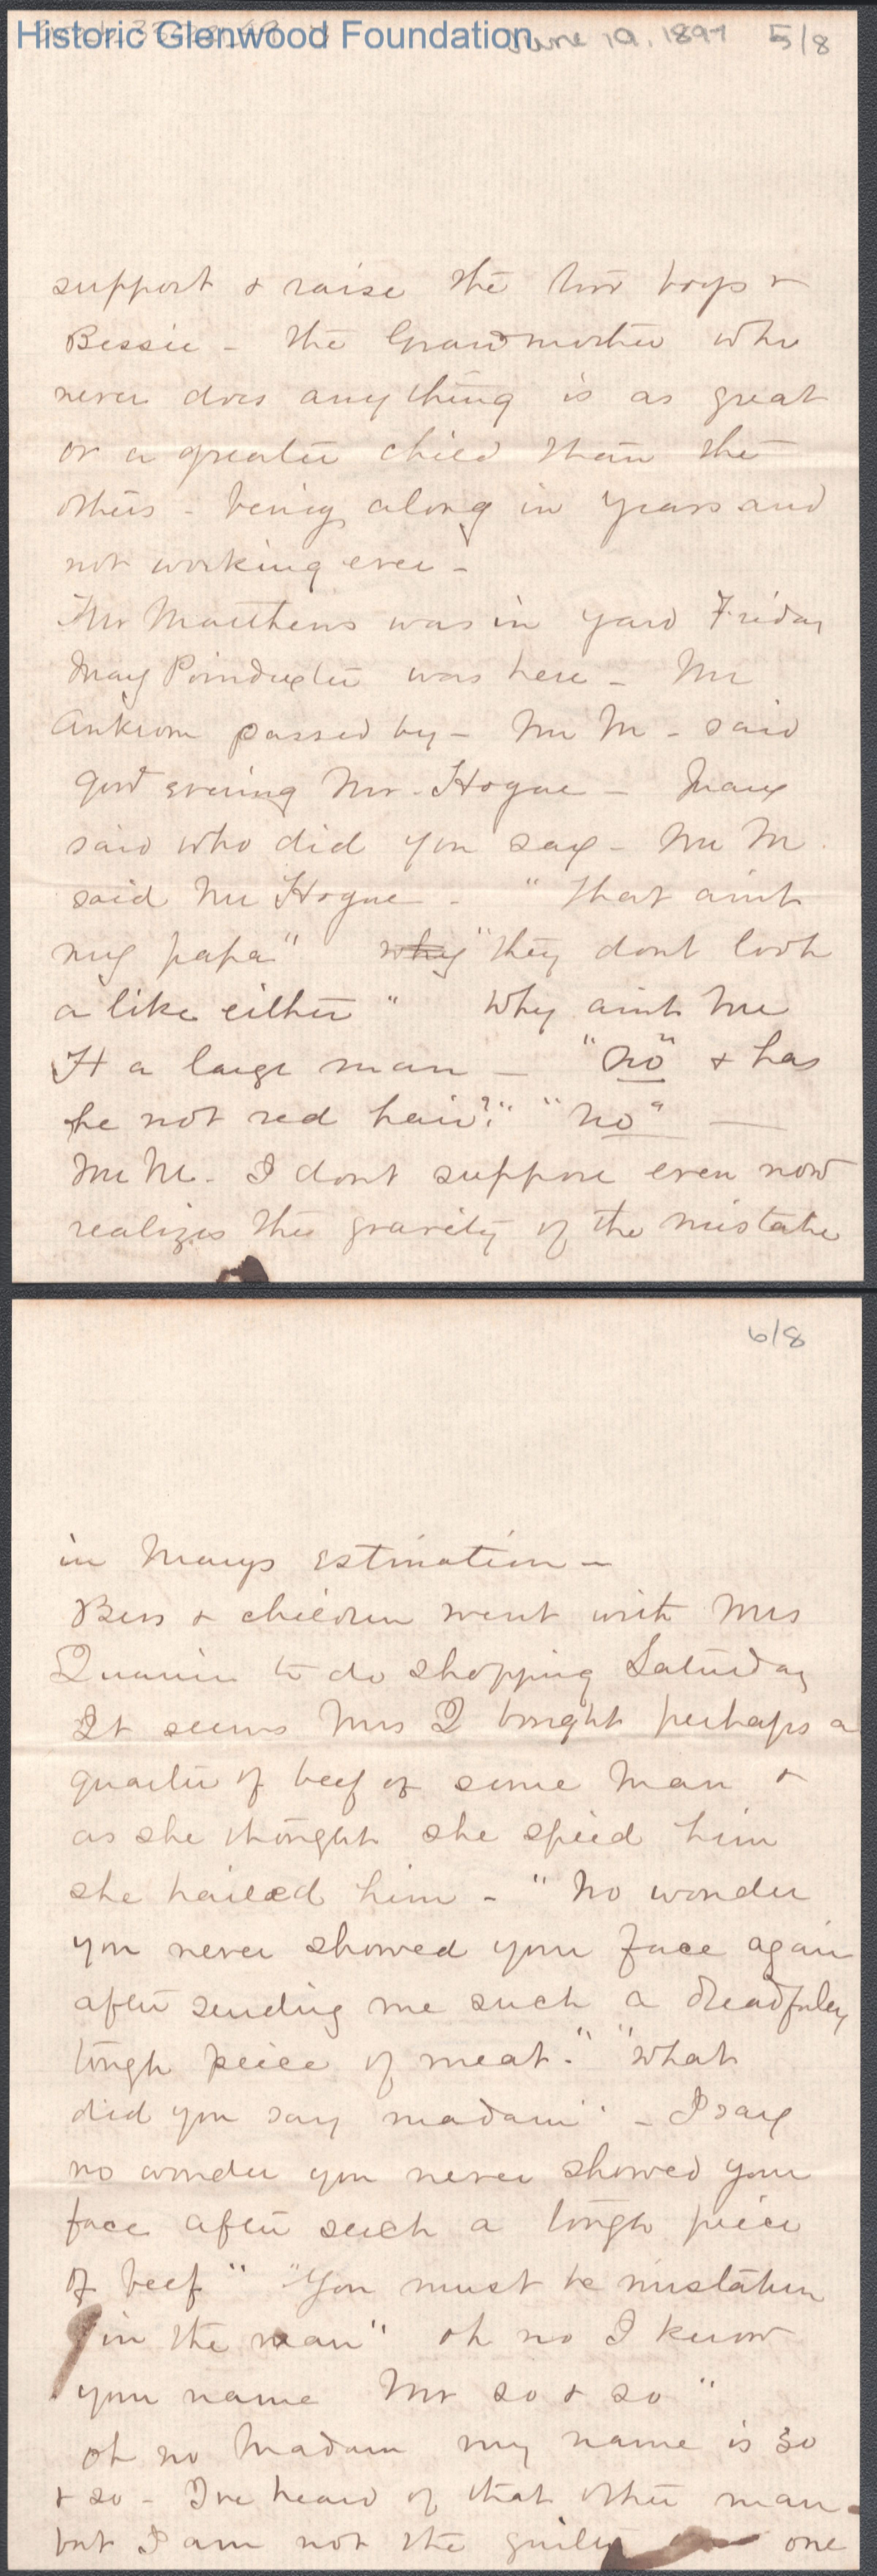 Historic Glenwood Foundation
June 19, 1897 5/8
support & raise the two boys &
Bessie - the Grandmother who
never does anything is as great
or a greater child than the
others - being along in years and
not working ever -
Mr Matthews was in yard Friday
Mary Poindexter was here - Mr
Ankrom passed by - Mr M - said
good evening Mr. Hogue - Mary
said who did you say - Mr M.
said Mr Hogue - " that aint
my papa" why "they dont look
a like either " Why aint Mr
H a large man - "no" & has
he not red hair?" "no" -
Mr M. I dont suppose even now
realizes the gravity of the mistake
6/8
in Marys estimation -
Bess & children went with Mrs
to do shopping Saturday
It seems Mrs Q bought perhaps a
quarter of beef of some man &
as she thought she spied him
she hailed him - " No wonder
you never showed your face again
after sending me such a dreadfuly
tough peice of meat." "what
did you say madam" - I say
no wonder you never showed your
face after such a tough piece
of beef " "You must be mistaken
in the man" oh no I know
your name Mr so & so "
oh no Madam my name is so
& so - Ive heard of that other man -
but I am not the guilty one